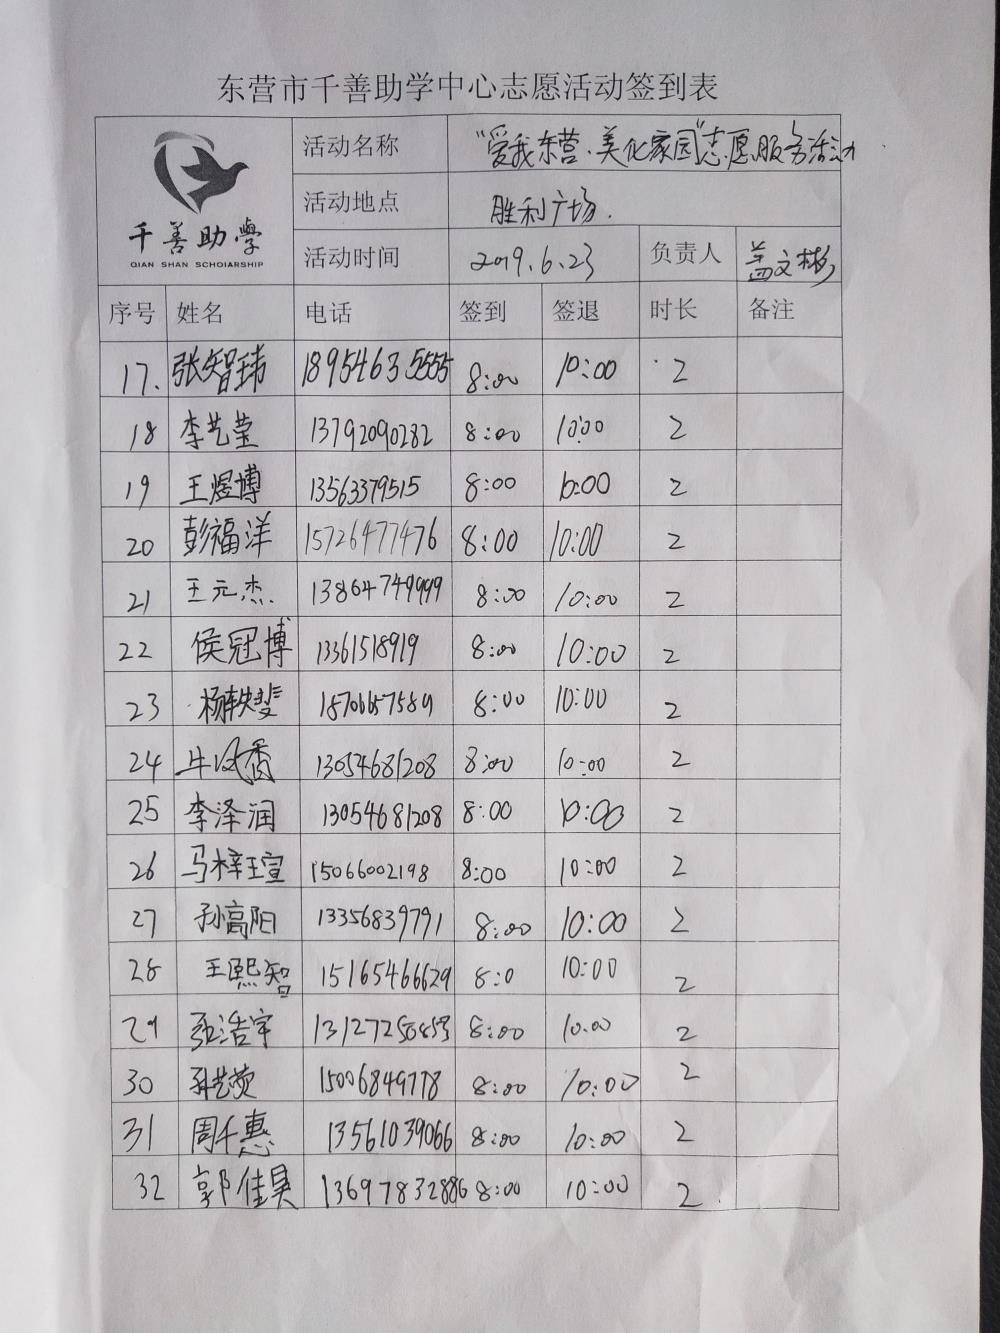 东营市千善助学中心志愿活动签到表
千善助學
QIAN SHAN SCHOIARSHIP
活动名称 “爱我东营·美化家园”志愿服务活动
活动地点 胜利广场.
活动时间 2019.6.23 负责人 盖文彬
序号 姓名 电话 签到 签退 时长 备注
17. 张智玮 18954635555 8:00 10:00 2
18 李艺莹 13792090282 8:00 10:00 2
19 王煜博 13563379515 8:00 10:00 2
20 彭福洋 15726477476 8:00 10:00 2
21 王元杰 13864749999 8:00 10:00 2
22 侯冠博 13361518919 8:00 10:00 2
23 杨轶斐 18706657589 8:00 10:00 2
24 牛凤香 13054681208 8:00 10:00 2
25 李泽润 13054681208 8:00 10:00 2
26 马梓瑄 15066002198 8:00 10:00 2
27 孙高阳 13356839791 8:00 10:00 2
28 王熙智 15165466629 8:0 10:00 2
29 张浩宇 8:00 10:00 2
30 孙艺荧 15006849778 8:00 10:00 2
31 周千惠 13561039066 8:00 10:00 2
32 郭佳昊 13697832886 8:00 10:00 2